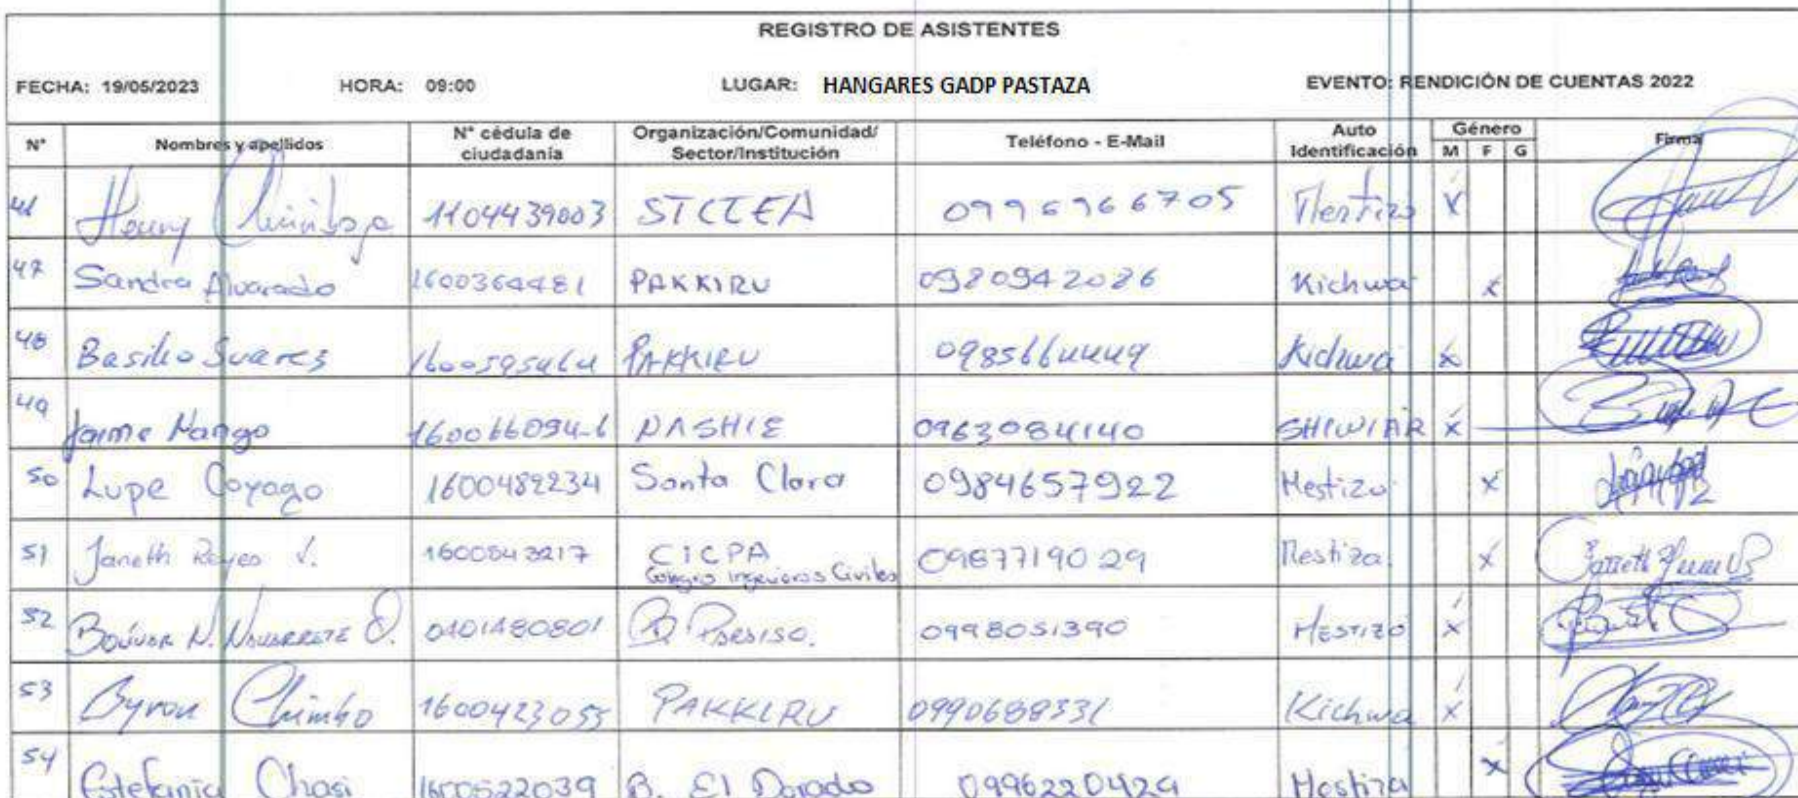 REGISTRO DE ASISTENTES
FECHA: 19/05/2023 HORA: 09:00 LUGAR: HANGARES GADP PASTAZA EVENTO: RENDICIÓN DE CUENTAS 2022
N° Nombres y apellidos N° cédula de ciudadanía Organización/Comunidad/ Sector/Institución Teléfono - E-Mail Auto Identificación Género M F G Firma
Henry 1104439003 STCTEA 0996966705 Mestizo X
47 Sandra Alvarado 1600364481 PAKKIRU 0980942086 Kichwa x
48 Basilio Suares 1600595464 PAKKIRU 0985664449 Kichwa x
49 Jaime Mango 160066094-6 NASHIE 0963084140 SHIWIAR x
50 Lupe Coyago 1600489234 Santa Clara 0984657922 Mestizo x
51 Janeth Reyes V. 1600543217 CICPA Colegio Ingenieros Civiles 0987719029 Mestiza x
52 Bolívar N. Navarrete O. 0401480801 B. Paraiso. 0998051390 Mestizo x
53 Byron Chimbo 1600423055 PAKKIRU 0990688331 Kichwa x
54 Estefania Chasi 1600522039 B. El Dorado 0996220429 Mestiza x